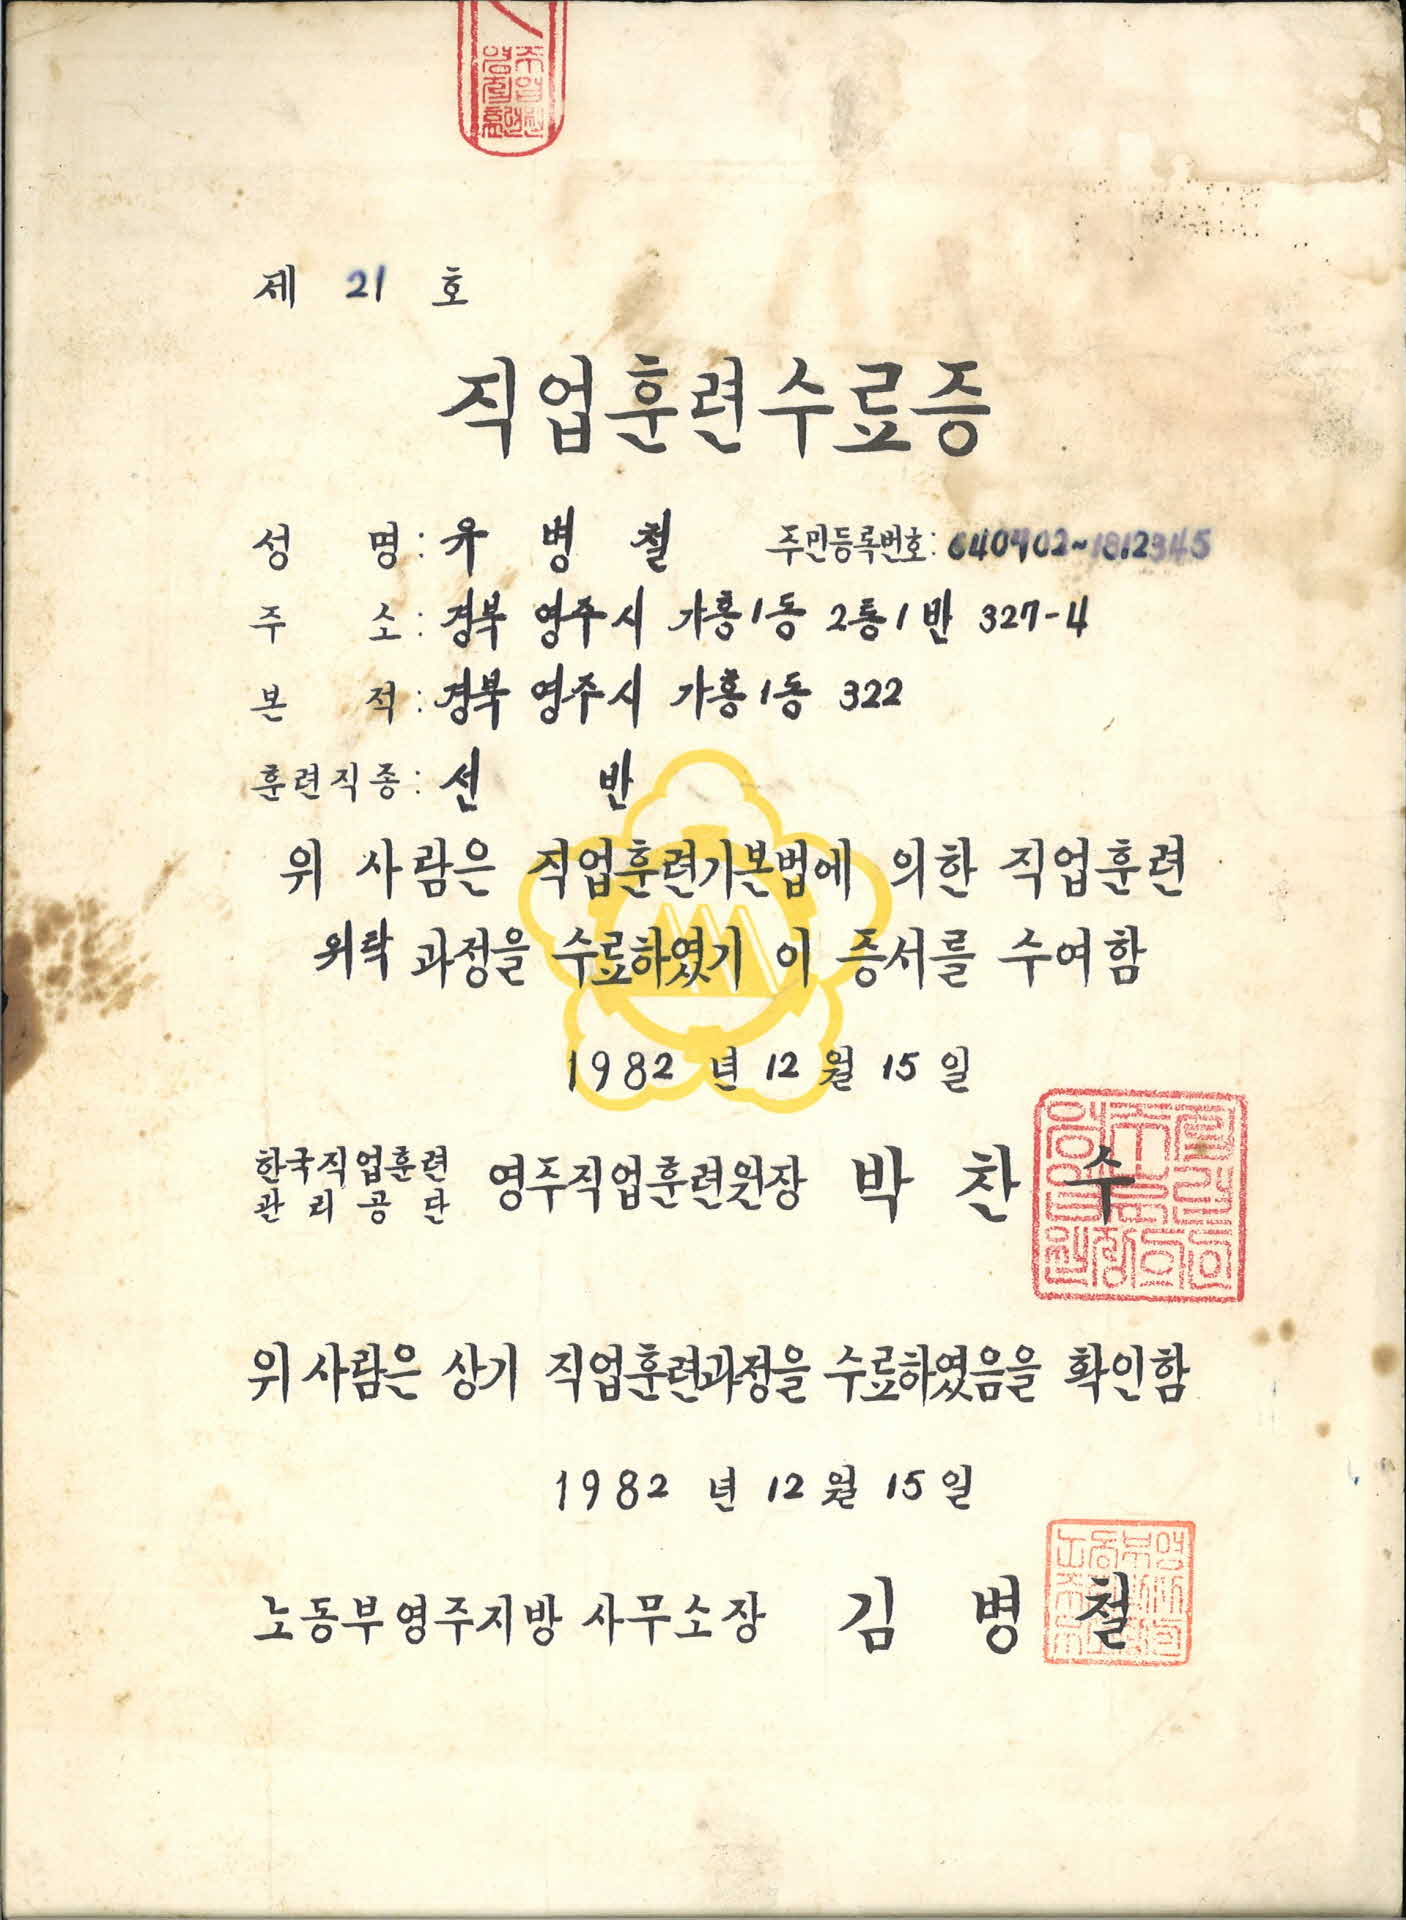 제 21 호
직업훈련수료증
성 명 : 유 병 철 주민등록번호 : 640702~1812345
주 소 : 경북 영주시 가흥1동 2통1반 327-4
본 적 : 경북 영주시 가흥1동 322
훈련직종 : 선 반
위 사람은 직업훈련기본법에 의한 직업훈련
위탁 과정을 수료하였기 이 증서를 수여함
1982 년 12 월 15 일
한국직업훈련
관리공단 영주직업훈련원장 박 찬 수
위 사람은 상기 직업훈련과정을 수료하였음을 확인함
1982 년 12 월 15 일
노동부영주지방 사무소장 김 병 철